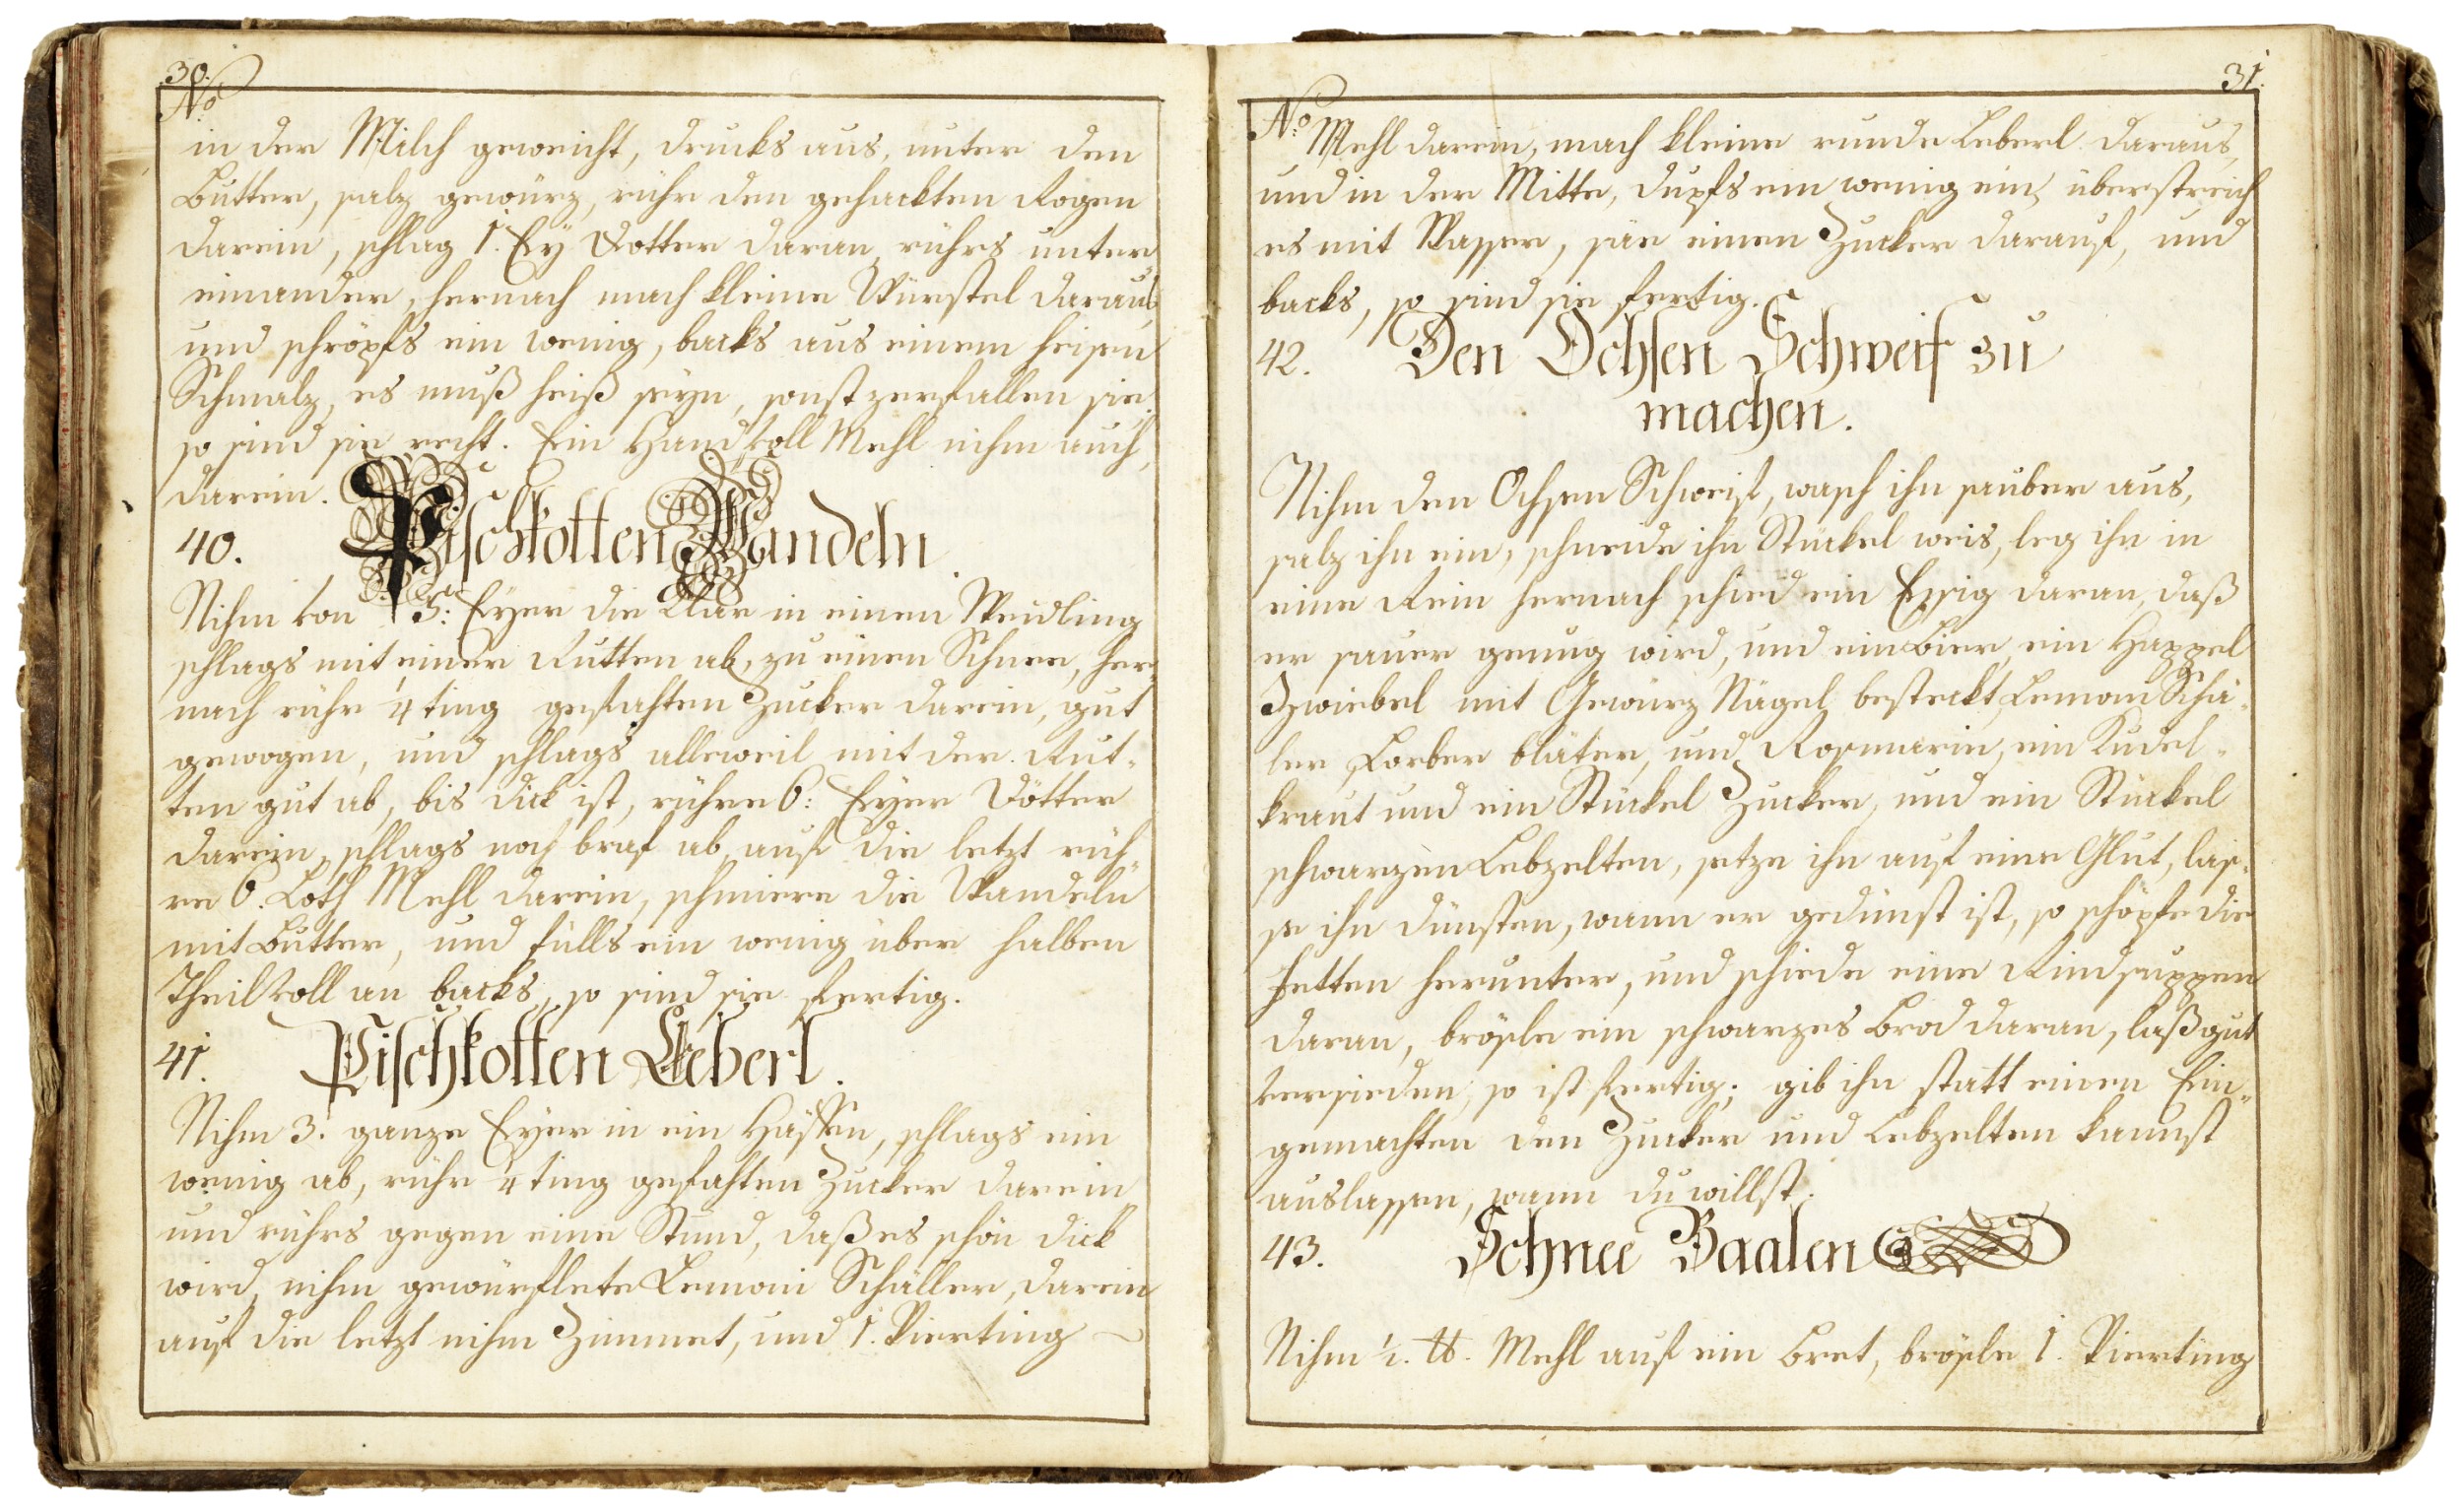 30.
No
in der Milch geweicht, drucks aus, unter den
Butter, salz gewürz, rühr den gehackten Rogen
darein, schlag 1. Ey Dotter daran, rührs unter
einander, hernach mach kleine Würstel daraus,
und schröpfs ein wenig, backs aus einem heisen
Schmalz, es muß heiß seyn, sonst zerfallen sie.
so sind sie recht. Ein Hand voll Mehl nihm auch,
darein.
40. Pischkotten Wandeln.
Nihm von 5: Eyer die Klar in einen Weidling
schlags mit einer Rutten ab, zu einen Schnee, her-
nach rühr 4ting gefahten Zucker darein, gut
gewogen, und schlags alleweil mit der Rut-
ten gut ab, bis dick ist, rühre 6: Eyer Dötter
darein, schlags noch braf ab, auf die letzt rüh-
re 6. Loth Mehl darein, schmiere die Wandeln
mit Butter, und fülls ein wenig über halben
Theil voll an backs, so sind sie fertig.
41. Pischkotten Leberl.
Nihm 3. ganze Eyer in ein Häffen, schlags ein
wenig ab, rühr 4ting gefahten Zucker darein
und rührs gegen eine Stund, daß es schön dick
wird, nihm gewürflete Lemoni Schäller, darein
auf die letzt nihm Zimmet, und 1. Vierting
31.
No
Mehl darein, mach kleine runde Leberl daraus,
und in der Mitte, dupfs ein wenig ein, überstreich
es mit Wasser, säe einen Zucker darauf, und
backs, so sind sie fertig.
42. Den Ochsen Schweif zu
machen.
Nihm den Ochsen Schweif, wasch ihn sauber aus,
salz ihn ein, schneide ihn Stückel weis, leg ihn in
eine Rein hernach schied ein Essig daran, daß
er sauer genug wird, und ein Bier, ein Happel
Zwiebel mit Gewürz Nägel besteckt, Lemoni Schä-
ler Lorber bläter, und Rosmarin, ein Kudel-
kraut und ein Stückel Zucker, und ein Stückel
schwarzen Lebzelten, setze ihn auf eine Glut, las-
se ihn dünsten, wann er gedünst ist, so schöpfe die
Fetten herunter, und schiede eine Rindsuppen
daran, brösle ein schwarzes Brod daran, laß gut
versieden, so ist fertig; gib ihn statt einen Ein-
gemachten den Zucker und Lebzelten kannst
auslassen, wann du willst.
43. Schnee Baalen
Nihm ½. ℔. Mehl auf ein Bret, brösle 1. Vierting